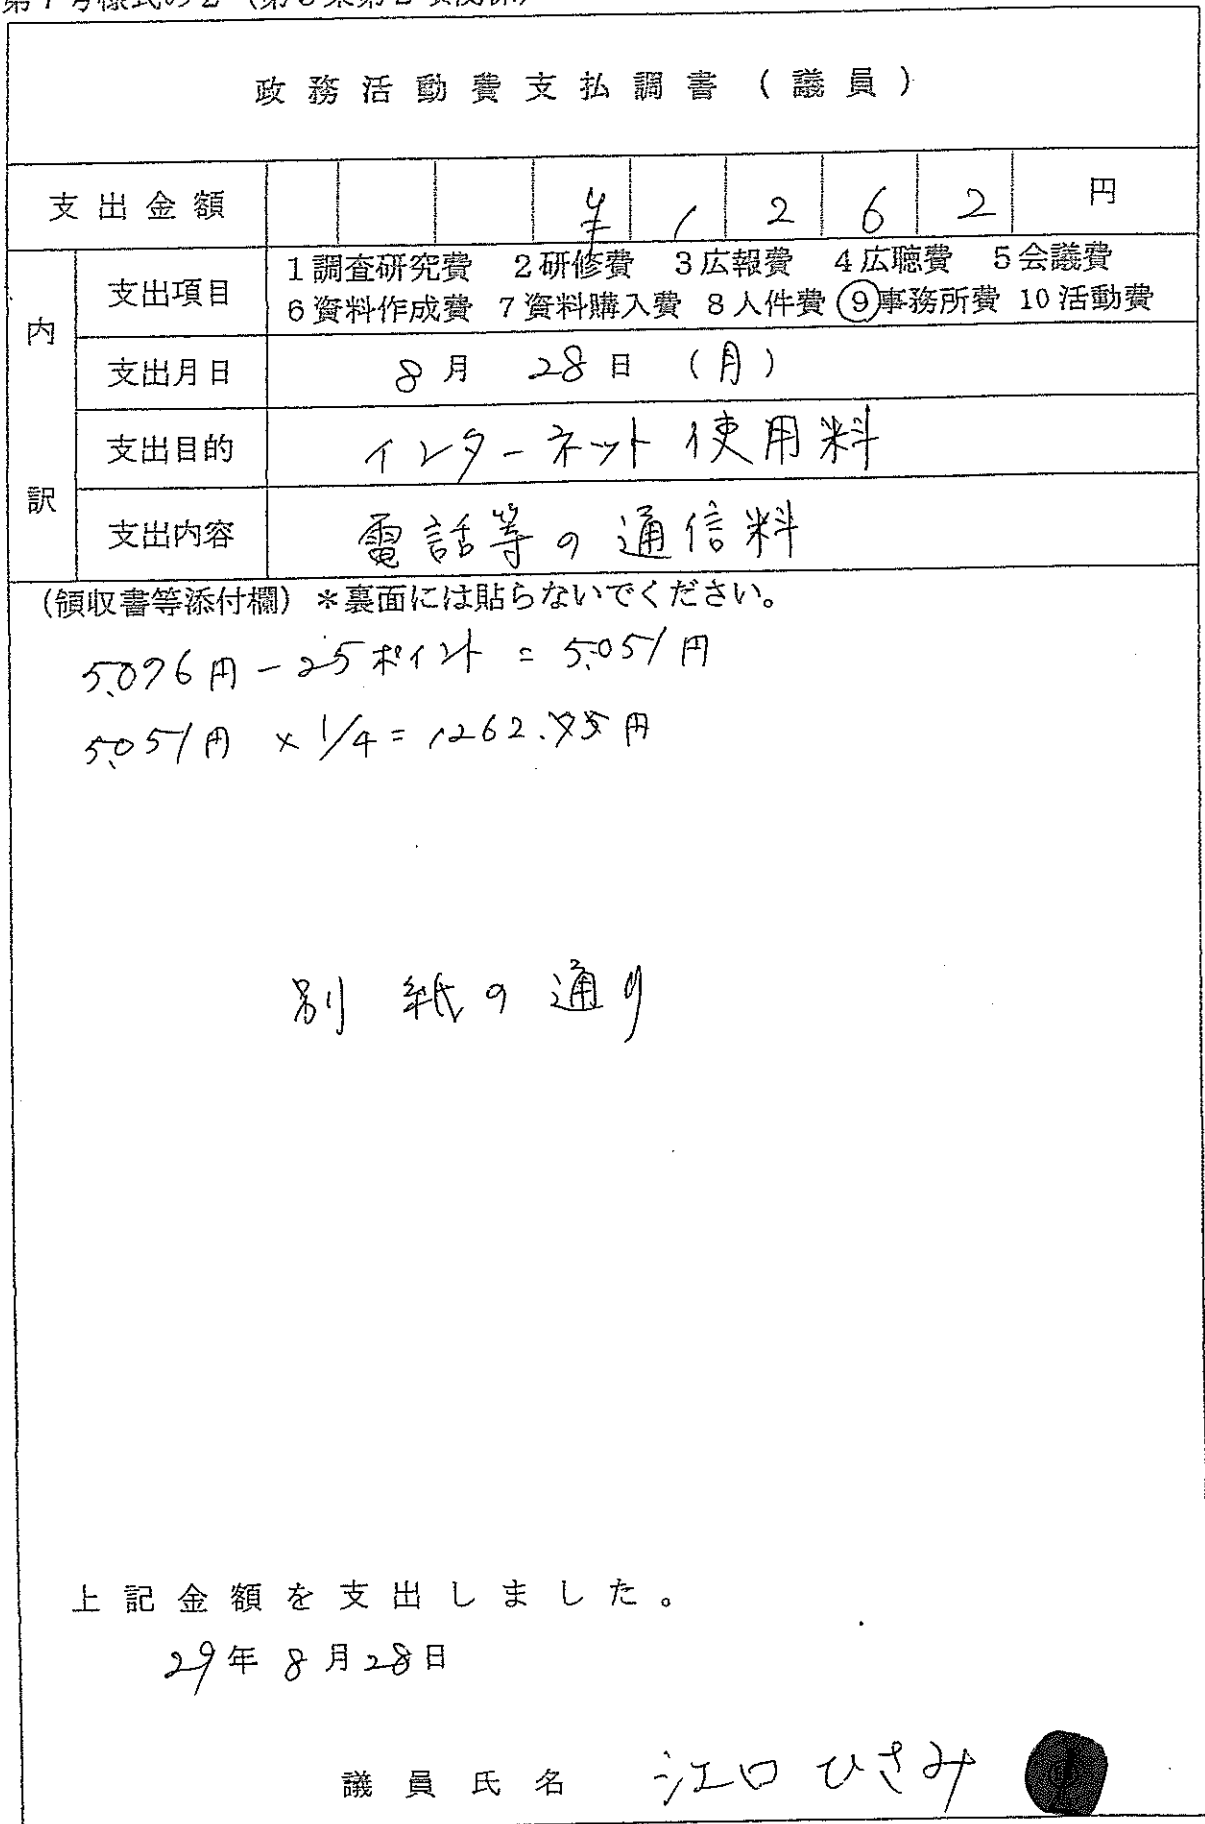 政務活動費支払調書（議員）
支出金額 ¥1262 円
内訳
支出項目 1調査研究費 2研修費 3広報費 4広聴費 5会議費
6資料作成費 7資料購入費 8人件費 ⑨事務所費 10活動費
支出月日 8月 28日 （月）
支出目的 インターネット使用料
支出内容 電話等の通信料
（領収書等添付欄）＊裏面には貼らないでください。
5,076円－25ポイント＝5,051円
5,051円 × 1/4＝1262.75円
別紙の通り
上記金額を支出しました。
29年 8月28日
議員氏名 江口ひさみ